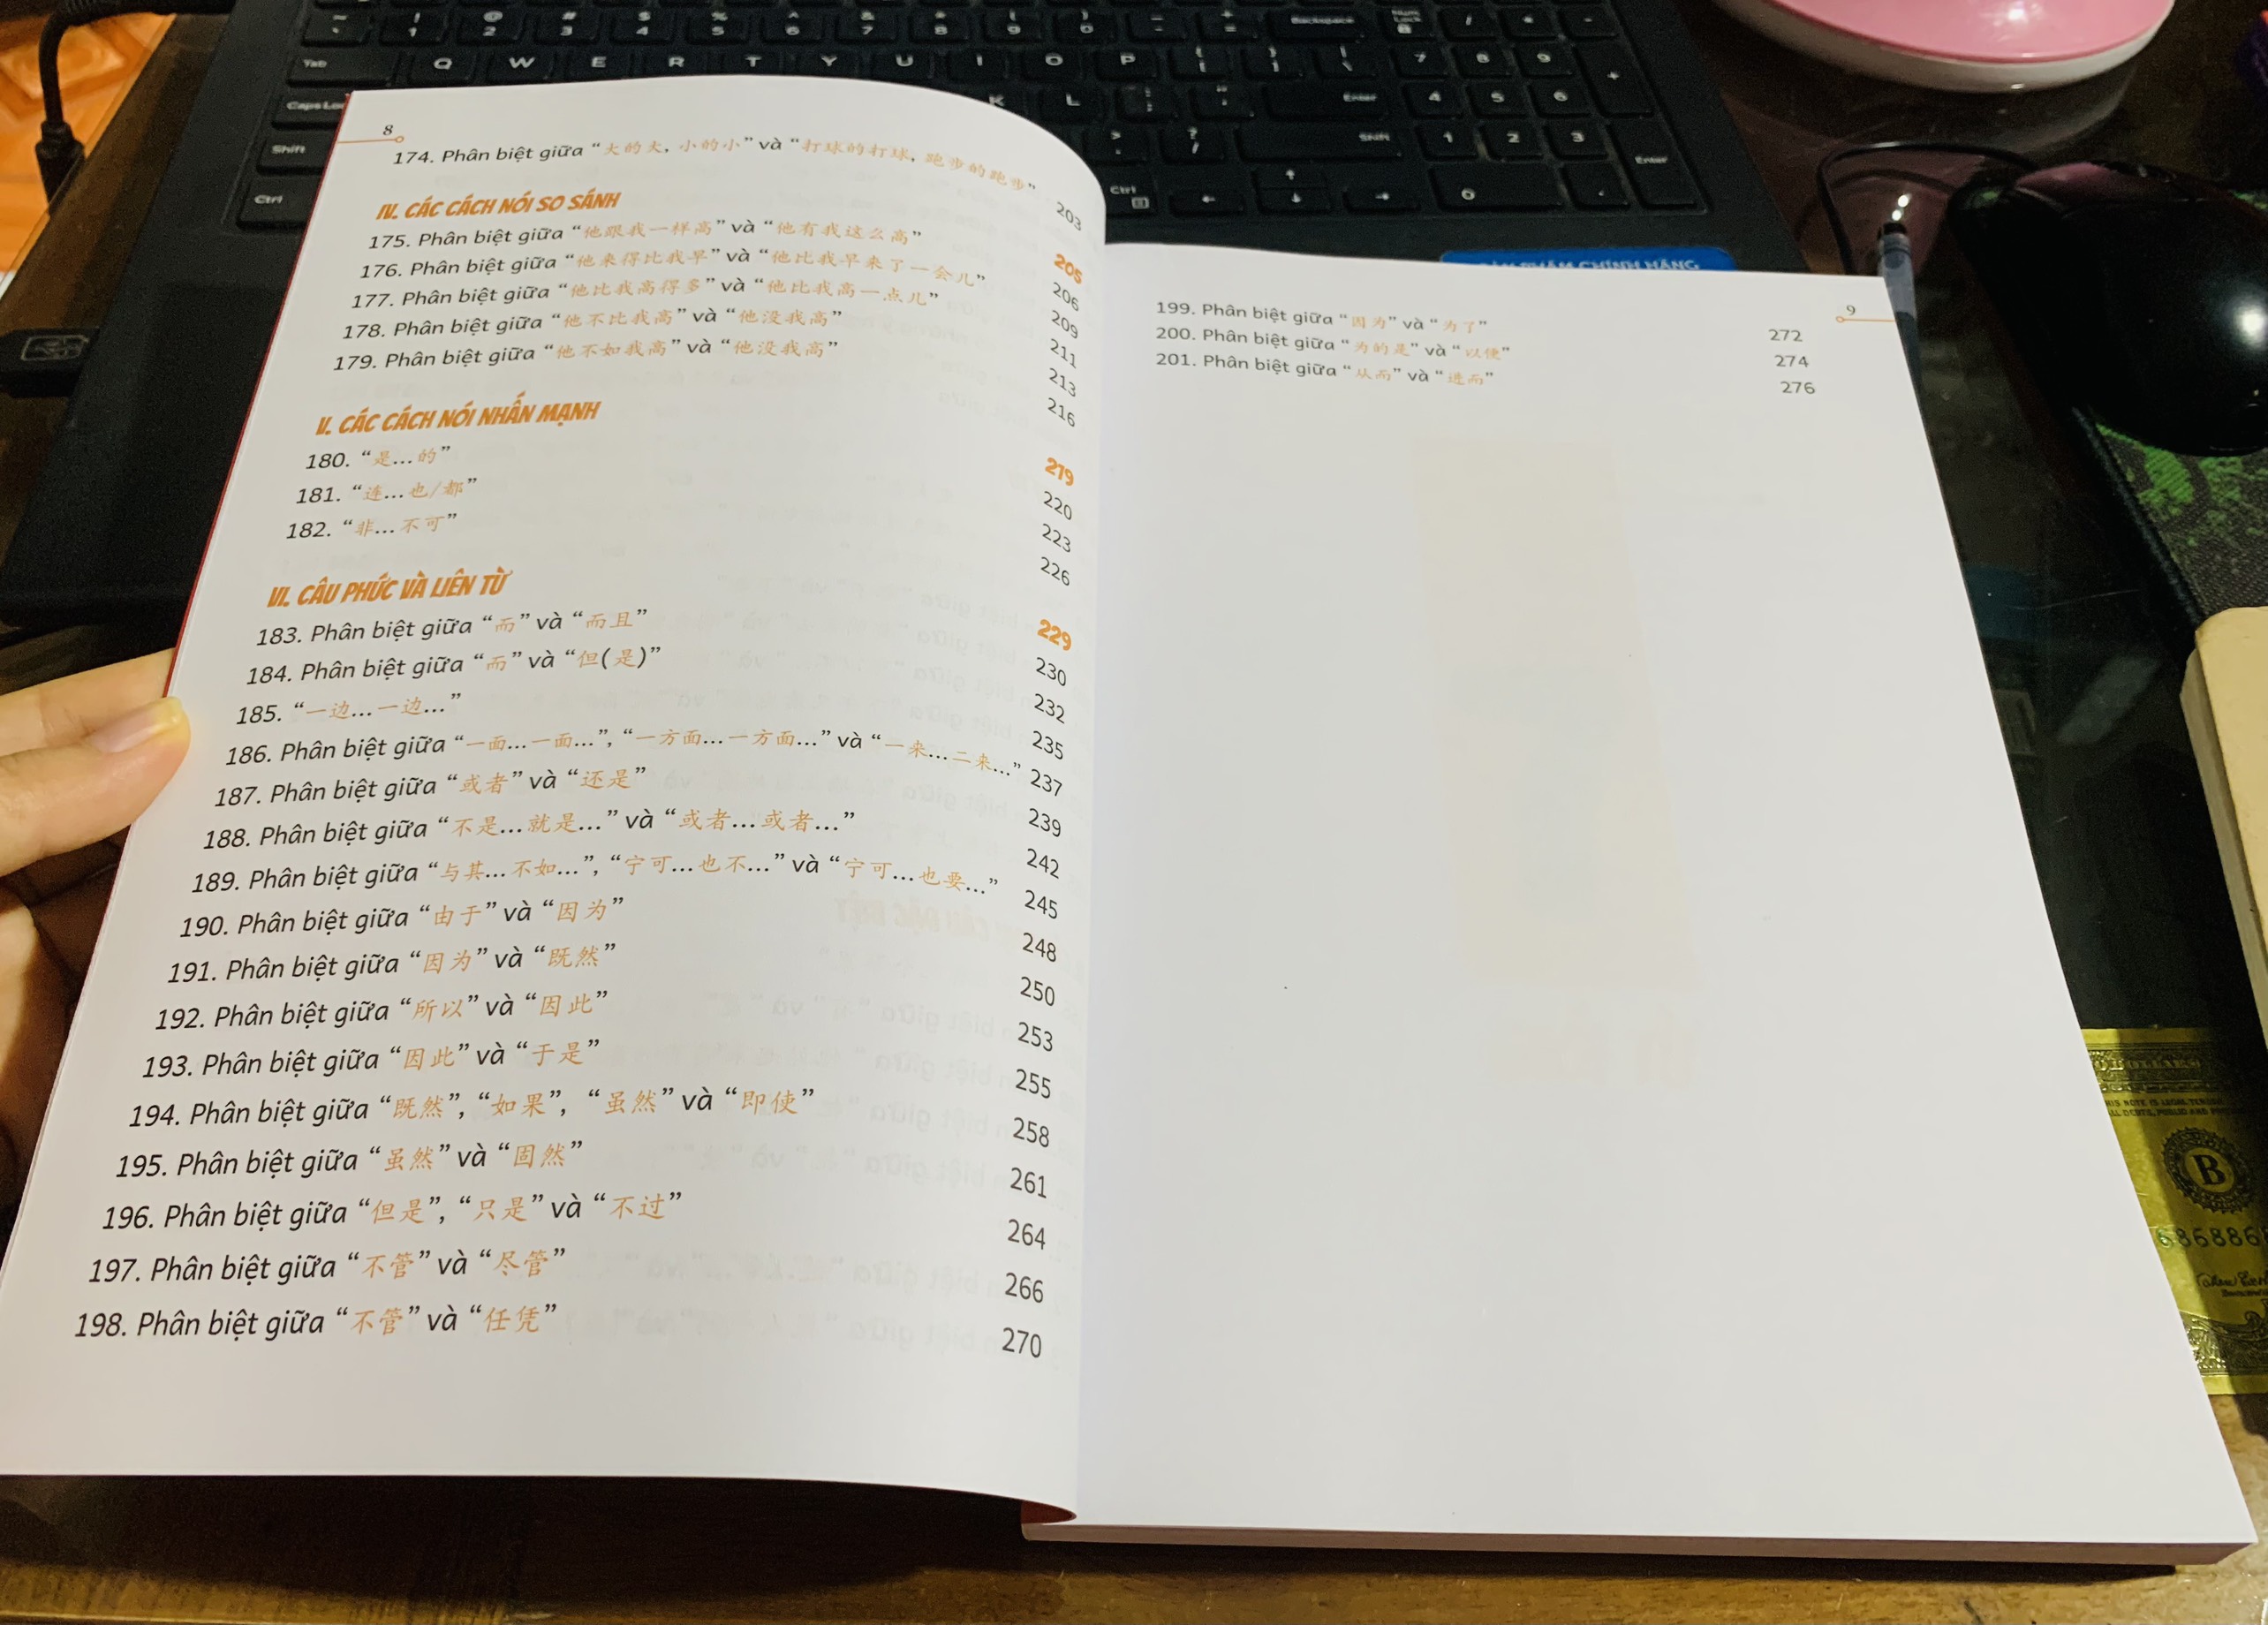 8
174. Phân biệt giữa “大的大, 小的小” và “打球的打球, 跑步的跑步” 203
IV. CÁC CÁCH NÓI SO SÁNH 205
175. Phân biệt giữa “他跟我一样高” và “他有我这么高” 206
176. Phân biệt giữa “他来得比我早” và “他比我早来了一会儿” 209
177. Phân biệt giữa “他比我高得多” và “他比我高一点儿” 211
178. Phân biệt giữa “他不比我高” và “他没我高” 213
179. Phân biệt giữa “他不如我高” và “他没我高” 216
V. CÁC CÁCH NÓI NHẤN MẠNH 219
180. “是...的” 220
181. “连...也/都” 223
182. “非...不可” 226
VI. CÂU PHỨC VÀ LIÊN TỪ 229
183. Phân biệt giữa “而” và “而且” 230
184. Phân biệt giữa “而” và “但(是)” 232
185. “一边...一边...” 235
186. Phân biệt giữa “一面...一面...”, “一方面...一方面...” và “一来...二来...” 237
187. Phân biệt giữa “或者” và “还是” 239
188. Phân biệt giữa “不是...就是...” và “或者...或者...” 242
189. Phân biệt giữa “与其...不如...”, “宁可...也不...” và “宁可...也要...” 245
190. Phân biệt giữa “由于” và “因为” 248
191. Phân biệt giữa “因为” và “既然” 250
192. Phân biệt giữa “所以” và “因此” 253
193. Phân biệt giữa “因此” và “于是” 255
194. Phân biệt giữa “既然”, “如果”, “虽然” và “即使” 258
195. Phân biệt giữa “虽然” và “固然” 261
196. Phân biệt giữa “但是”, “只是” và “不过” 264
197. Phân biệt giữa “不管” và “尽管” 266
198. Phân biệt giữa “不管” và “任凭” 270
9
199. Phân biệt giữa “因为” và “为了” 272
200. Phân biệt giữa “为的是” và “以便” 274
201. Phân biệt giữa “从而” và “进而” 276